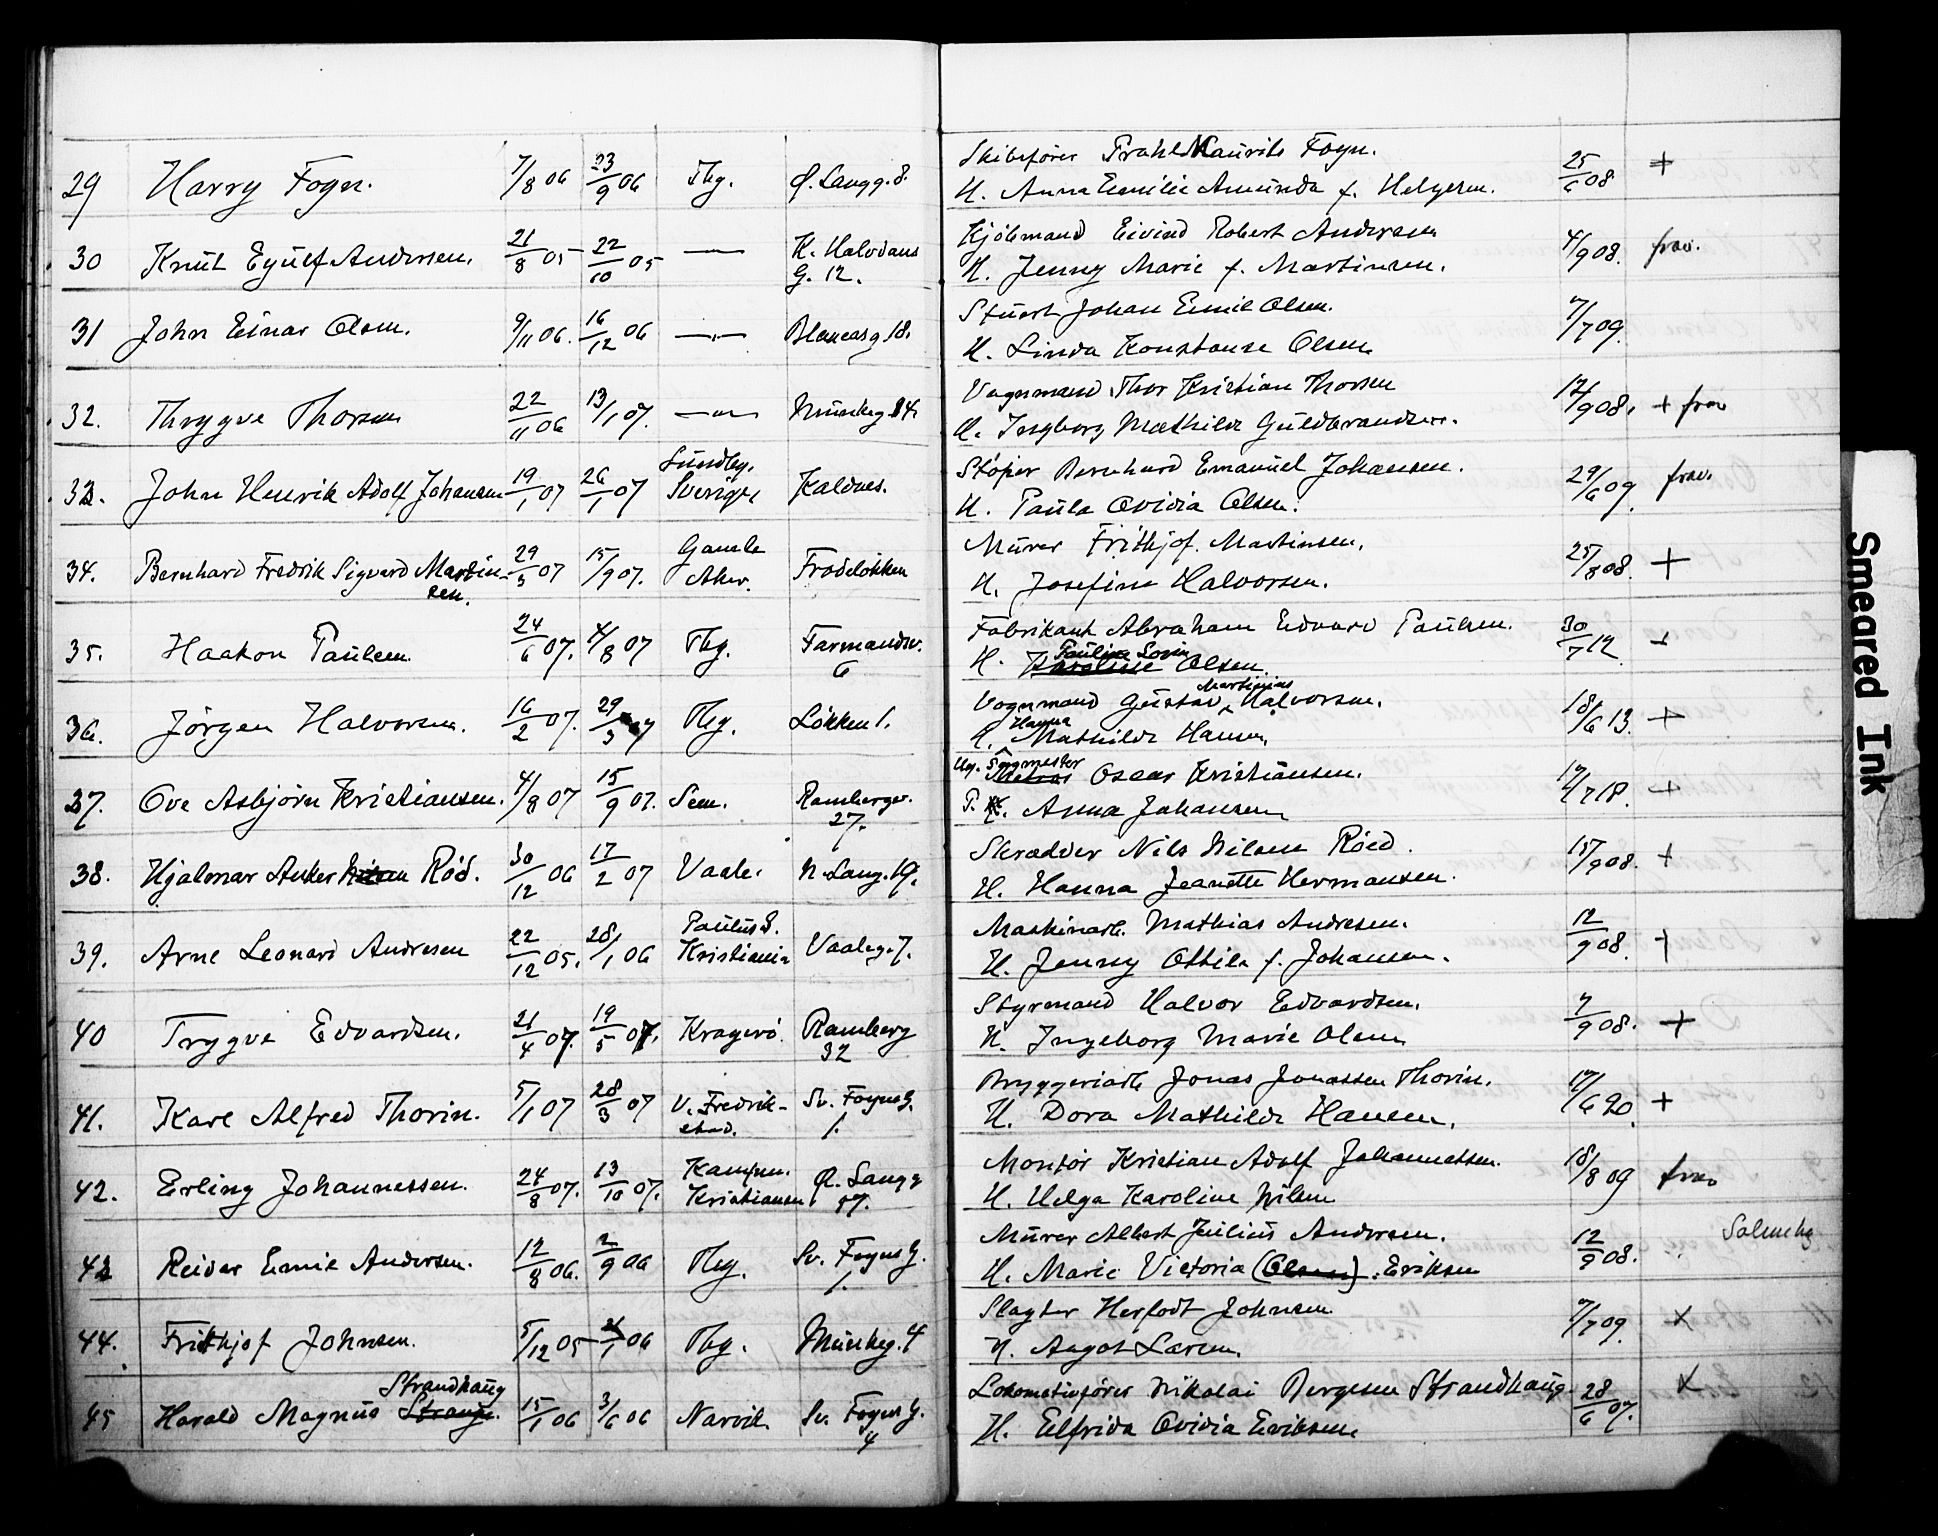 29 Harry Fogn. 7/8 06 23/9 06 Tbg. Ø. Langg. 8. Skibsfører Prahl Maurits Fogn. 25/6 08 +
H. Anna Emilie Amunda f. Helgesen.
30 Knut Eyulf Andersen. 21/8 05 22/10 05 — K. Halvdans G. 12. Kjöbmand Eivind Robert Andersen 4/9 08. frav.
H. Jenny Marie f. Martinsen.
31 John Einar Olsen. 9/11 06. 16/12 06 — Stuert Johan Emil Olsen. 7/7 09.
H. Linda Konstanse Olsen
32. Thrygve Thorsen 22/11 06 13/1 07. — Munkeg. 34. Vognmand Thor Kristian Thorsen 17/9 08. + frav
H. Ingborg Mathilde Guldbrandsen.
33. John Henrik Adolf Johansen 19/1 07 26/1 07 Sundby. Sverige Kaldnes. Støper Bernhard Emanuel Johansen. 29/6 09. frav.
H. Paula Ovidia Olsen.
34. Bernhard Fredrik Sigvard Martinsen. 29/3 07 15/9 07. Gamle Aker. Frodeløkken Murer Frithjof Martinsen. 25/8 08. +
H. Josefine Halvorsen.
35. Haakon Paulsen. 24/6 07. 4/8 07 Tbg. Farmandsv. 6 Fabrikant Abraham Edvard Paulsen. 30/7 12 +
H. Karoline Pauline Lovin Olsen.
36. Jörgen Halvorsen. 16/2 07. 29/3 07 Tbg. Løkken 1. Vognmand Gustav Martinius Halvorsen. 18/6 13. +
H. Hanna Mathilde Hansen.
37. Ove Asbjörn Kristiansen. 4/8 07 15/9 07. Sem. Rambergv. 27. Ug. Sagmester Oscar Kristiansen. 17/7 18. +
P. H. Anna Johansen
38. Hjalmar Anker Nilsen Röd. 30/12 06 17/2 07 Vaale. N. Langg. 19. Skrædder Nils Nilsen Röed. 15/9 08. +
H. Hanna Jeanette Hermansen.
39. Arne Leonard Andresen 22/12 05. 28/1 06 Paulus S. Kristiania Vaaleg. 7. Maskinarb. Mathias Andresen. 12/9 08. +
H. Jenny Ottile f. Johansen.
40 Trygve Edvardsen. 21/4 07. 19/5 07. Kragerö. Ramberg 32 Styrmand Halvor Edvardsen. 7/9 08. +
H. Ingeborg Marie Olsen
41. Karl Alfred Thorin. 5/1 07 28/3 07 V. Fredrikstad. Sv. Foyns G. 1. Bryggeriarb Jonas Jonassen Thorin. 17/6 20. +
H. Dora Mathilde Hansen.
42. Erling Johannessen. 24/8 07. 13/10 07. Kampen. Kristiansen Ø. Langg 57. Montör Kristian Adolf Johannessen. 18/8 09 frav
H. Helga Karoline Nilsen
43 Reidar Emil Andersen. 12/8 06. 2/9 06 Tbg. Sv. Foyns G. 1. Murer Albert Julius Andersen. 12/9 08.
H. Marie Victoria (Olsen). Eriksen
44. Frithjof Johnsen. 5/12 05 21/1 06 Tbg. Munkeg. 4 Slagter Herlodt Johnsen 7/7 09. x
H. Aagot Larsen.
45 Harald Magnus Strange. Strandhaug 15/1 06 3/6 06 Narvik Sv. Foyns G. 4 Lokomotivförer Nikolai Bergesen Strandhaug 28/6 07. x
H. Elfrida Ovidia Eriksen
Smeared Ink